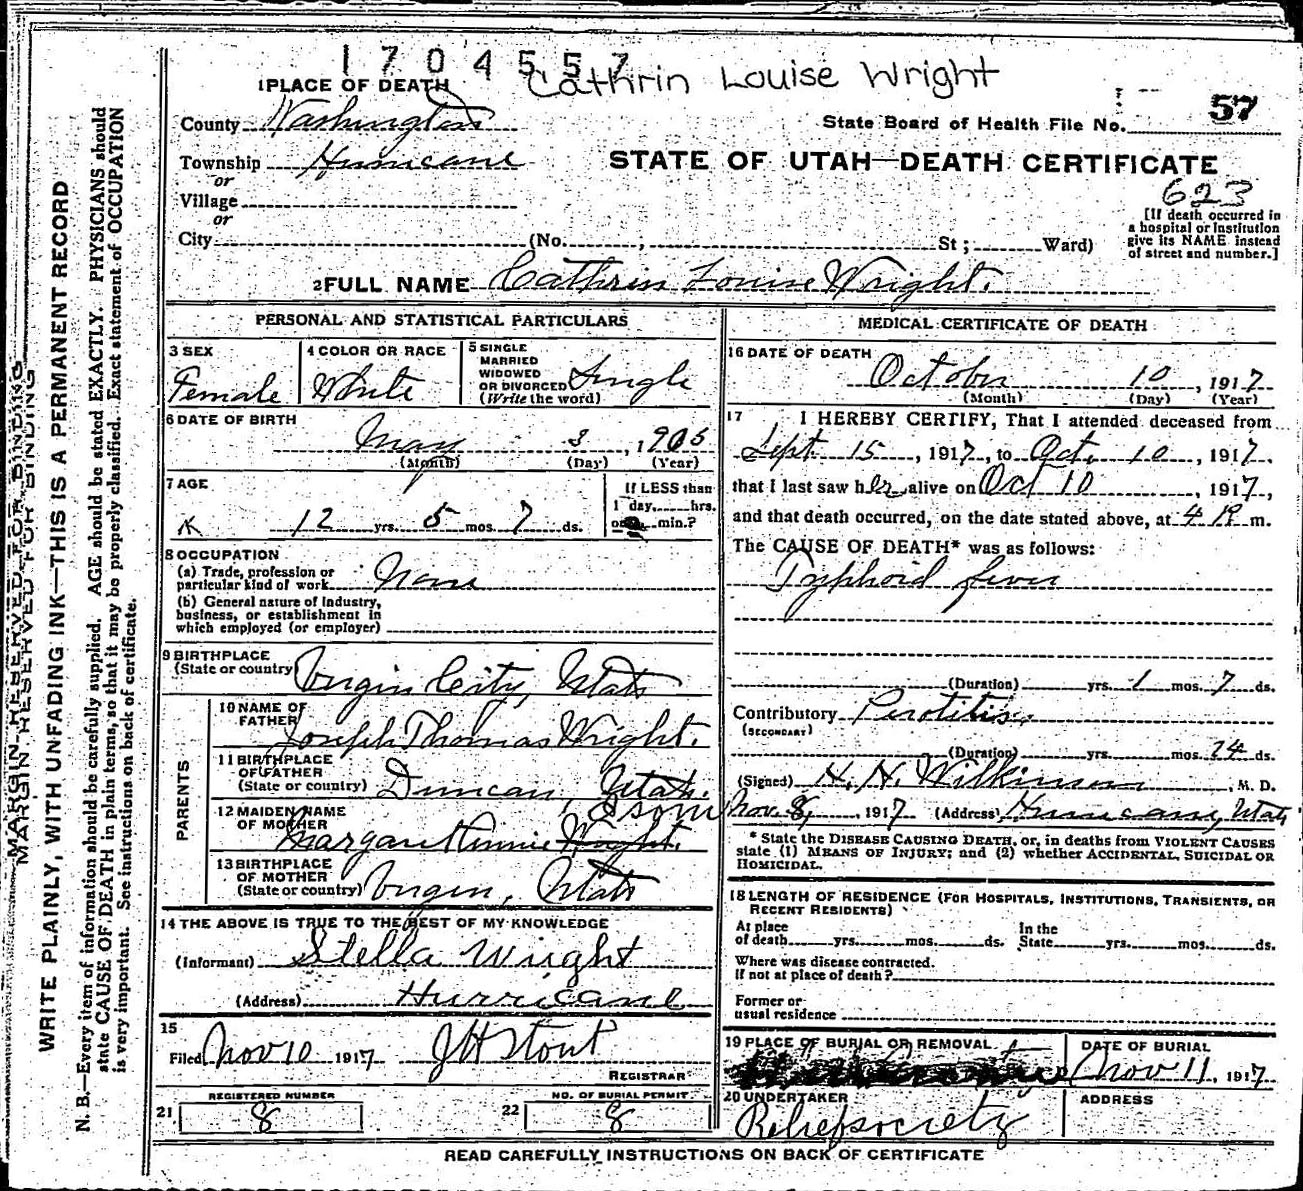 1704557
Cathrin Louise Wright
1 PLACE OF DEATH
County Washington
State Board of Health File No. 57
Township Hurricane
STATE OF UTAH—DEATH CERTIFICATE
or
623
Village
[If death occurred in a hospital or institution give its NAME instead of street and number.]
or
City (No. , St ; Ward)
2 FULL NAME Cathrin Louise Wright.
PERSONAL AND STATISTICAL PARTICULARS
3 SEX
Female
4 COLOR OR RACE
White
5 SINGLE
MARRIED
WIDOWED
OR DIVORCED
(Write the word)
Single
6 DATE OF BIRTH
May 3, 1905
(Month) (Day) (Year)
7 AGE
12 yrs. 5 mos. 7 ds.
If LESS than
1 day, hrs.
or min.?
8 OCCUPATION
(a) Trade, profession or
particular kind of work None
(b) General nature of industry,
business, or establishment in
which employed (or employer)
9 BIRTHPLACE
(State or country) Virgin City, Utah
PARENTS
10 NAME OF
FATHER
Joseph Thomas Wright.
11 BIRTHPLACE
OF FATHER
(State or country) Duncan, Utah.
12 MAIDEN NAME
OF MOTHER Isom
Margaret Minnie Wright.
13 BIRTHPLACE
OF MOTHER
(State or country) Virgin, Utah
14 THE ABOVE IS TRUE TO THE BEST OF MY KNOWLEDGE
(Informant) Stella Wright
(Address) Hurricane
15
Filed Nov 10 1917 J H Stout
REGISTRAR
21 REGISTERED NUMBER
8
22 NO. OF BURIAL PERMIT
8
MEDICAL CERTIFICATE OF DEATH
16 DATE OF DEATH
October 10, 1917
(Month) (Day) (Year)
17 I HEREBY CERTIFY, That I attended deceased from
Sept. 15, 1917, to Oct. 10, 1917,
that I last saw her alive on Oct 10, 1917,
and that death occurred, on the date stated above, at 4 P m.
The CAUSE OF DEATH* was as follows:
Typhoid fever
(Duration) yrs. 1 mos. 7 ds.
Contributory Perotitis
(SECONDARY)
(Duration) yrs. mos. 24 ds.
(Signed) H. H. Wilkinson, M. D.
Nov. 8, 1917 (Address) Hurricane, Utah
* State the DISEASE CAUSING DEATH, or, in deaths from VIOLENT CAUSES
state (1) MEANS OF INJURY; and (2) whether ACCIDENTAL, SUICIDAL OR
HOMICIDAL.
18 LENGTH OF RESIDENCE (FOR HOSPITALS, INSTITUTIONS, TRANSIENTS, OR
RECENT RESIDENTS)
At place In the
of death yrs. mos. ds. State yrs. mos. ds.
Where was disease contracted.
If not at place of death?
Former or
usual residence
19 PLACE OF BURIAL OR REMOVAL
DATE OF BURIAL
Nov 11, 1917
20 UNDERTAKER
Relief society
ADDRESS
READ CAREFULLY INSTRUCTIONS ON BACK OF CERTIFICATE
MARGIN RESERVED FOR BINDING
MARGIN RESERVED FOR BINDING
WRITE PLAINLY, WITH UNFADING INK—THIS IS A PERMANENT RECORD
N. B.—Every item of information should be carefully supplied. AGE should be stated EXACTLY. PHYSICIANS should
state CAUSE OF DEATH in plain terms, so that it may be properly classified. Exact statement of OCCUPATION
is very important. See instructions on back of certificate.